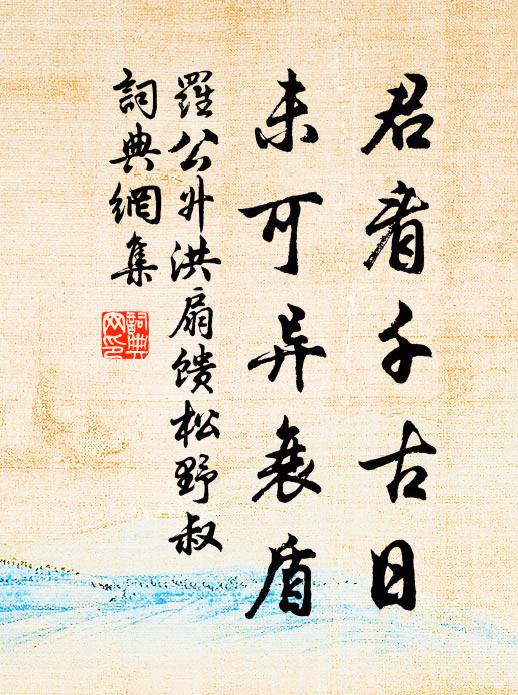 君看千古日
未可异衰盾
羅公升洪扇馈松野叔
詞典網集
詞典
网印